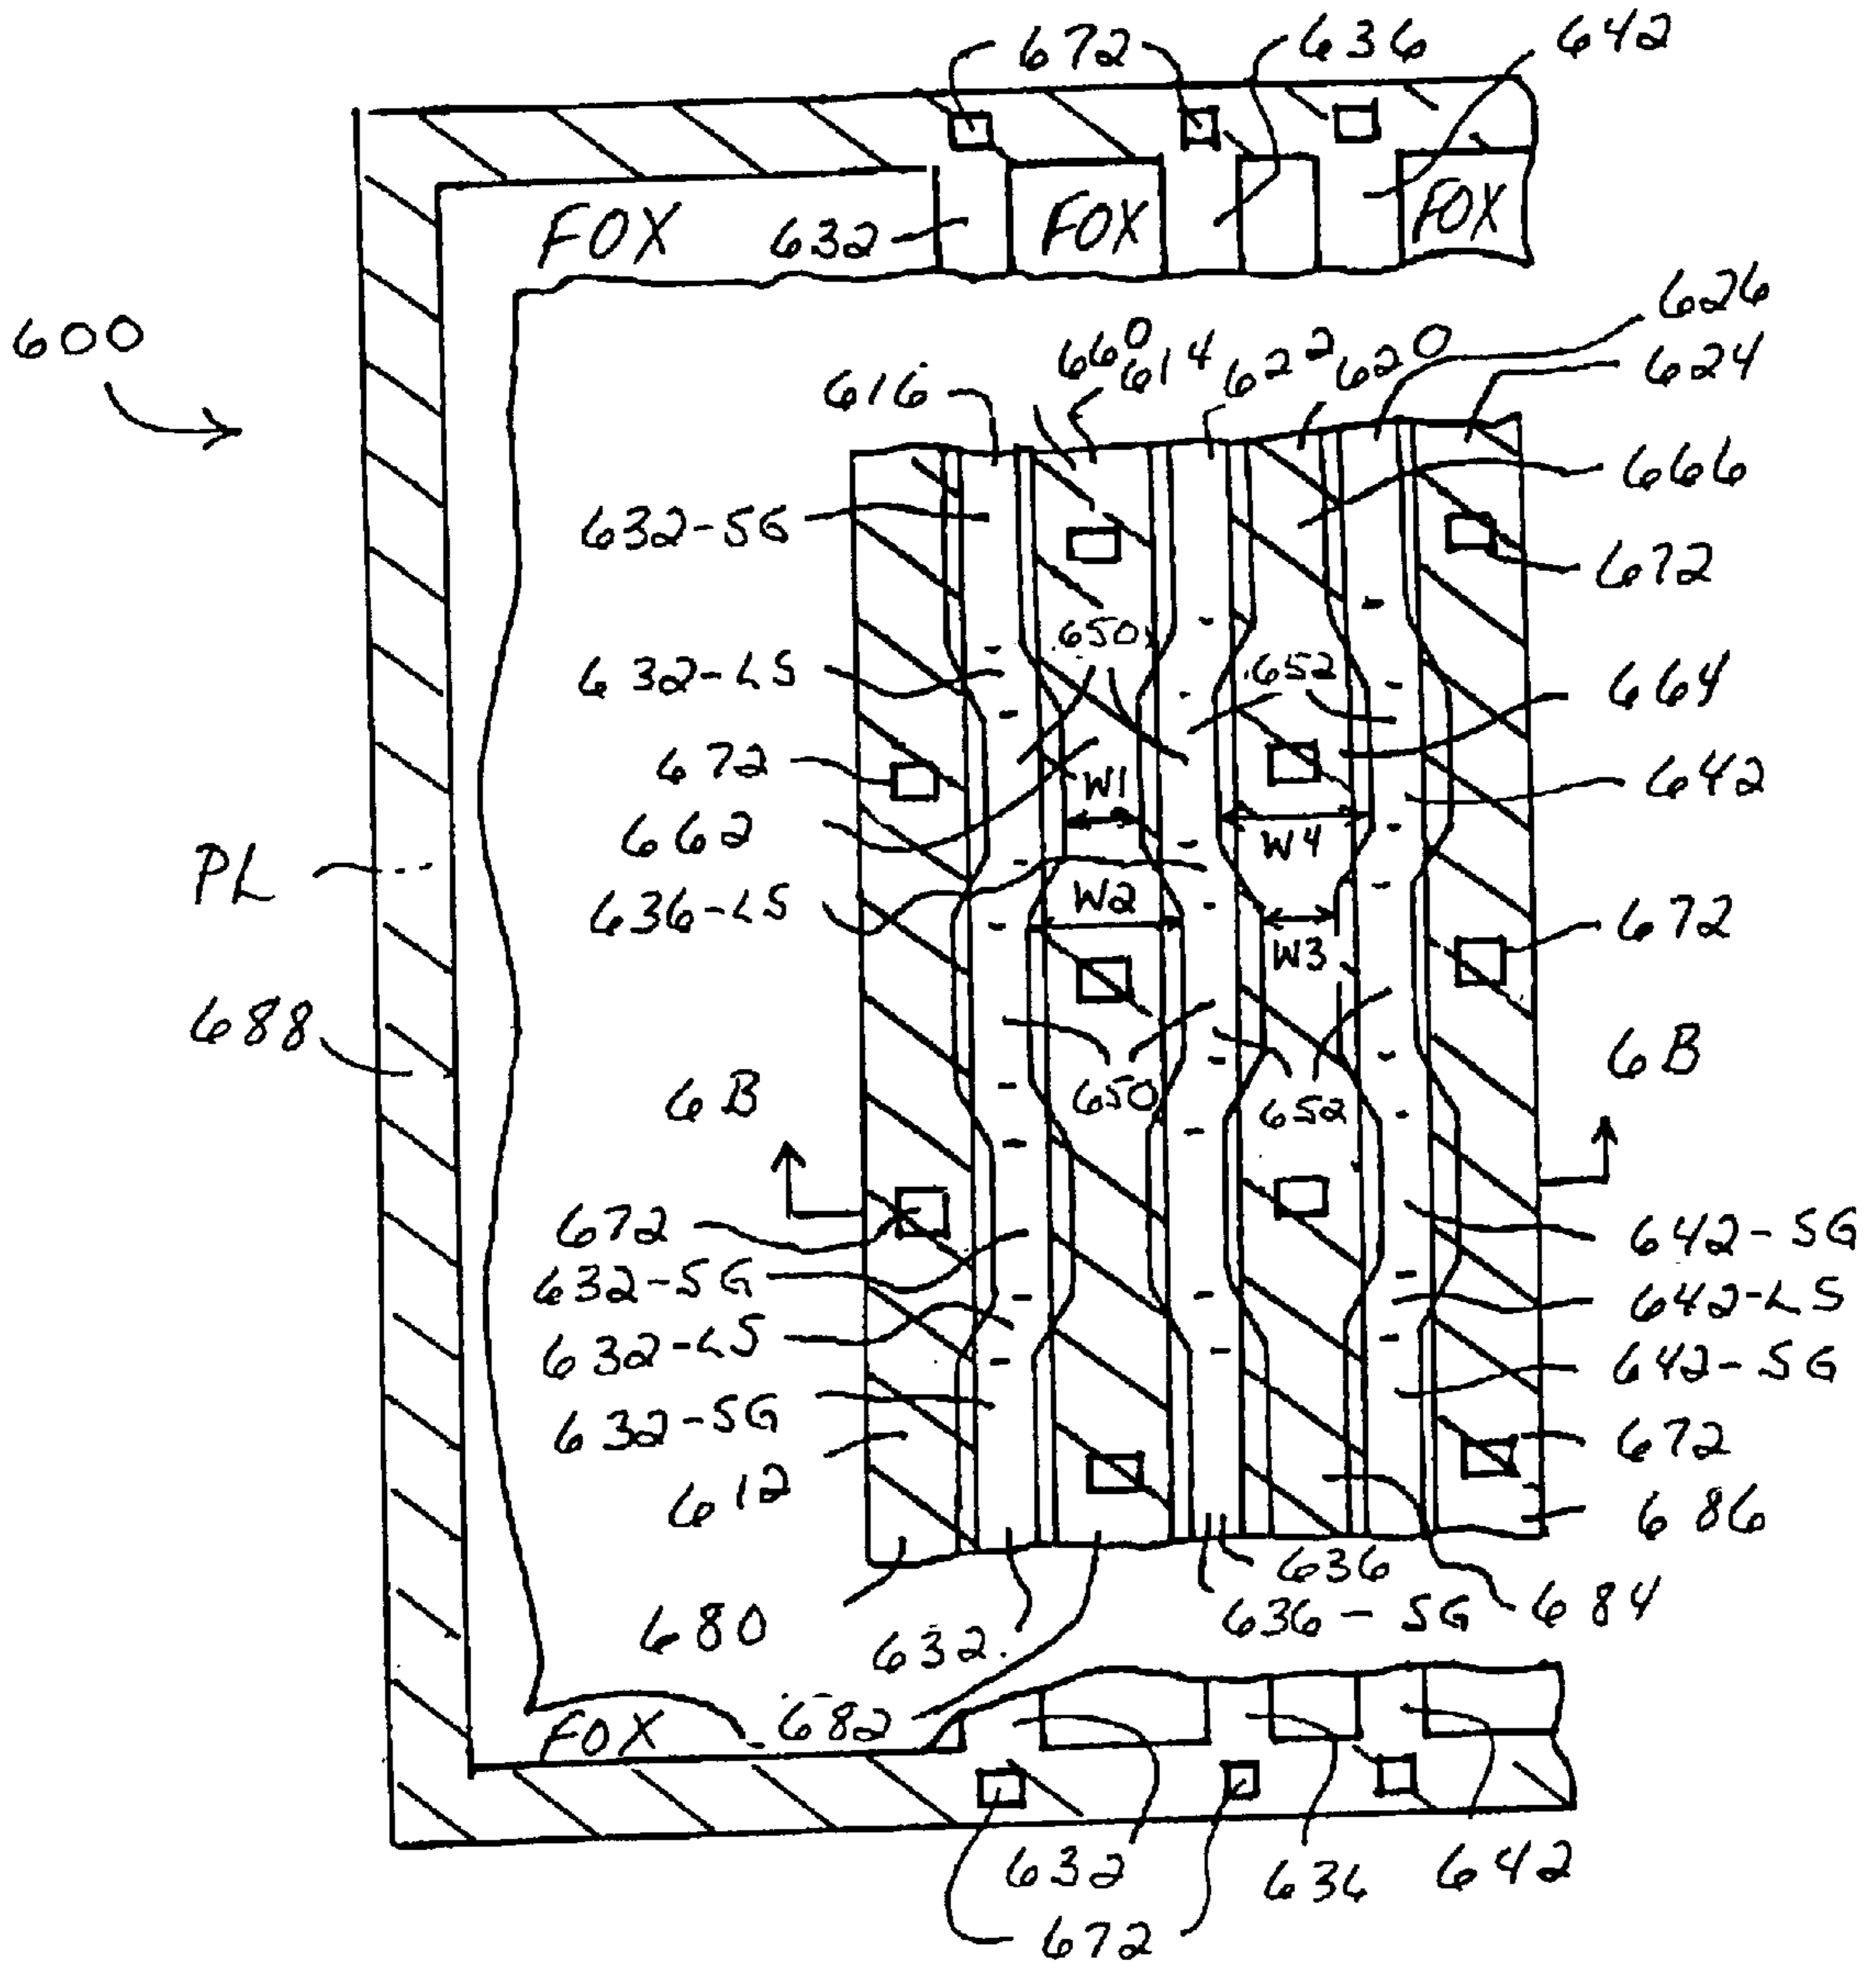 672 636 642
FOX 632 FOX FOX
600
626
616 660 614 622 620 624
666
632-SG
672
650
632-LS 652 664
672 W1 642
662 W4
PL
636-LS W2 672
W3
688
6B 650 652 6B
672 642-SG
632-SG 642-LS
632-LS 642-SG
632-SG 672
612 686
636
680 632 636-SG 684
FOX 682
632 636 642
672